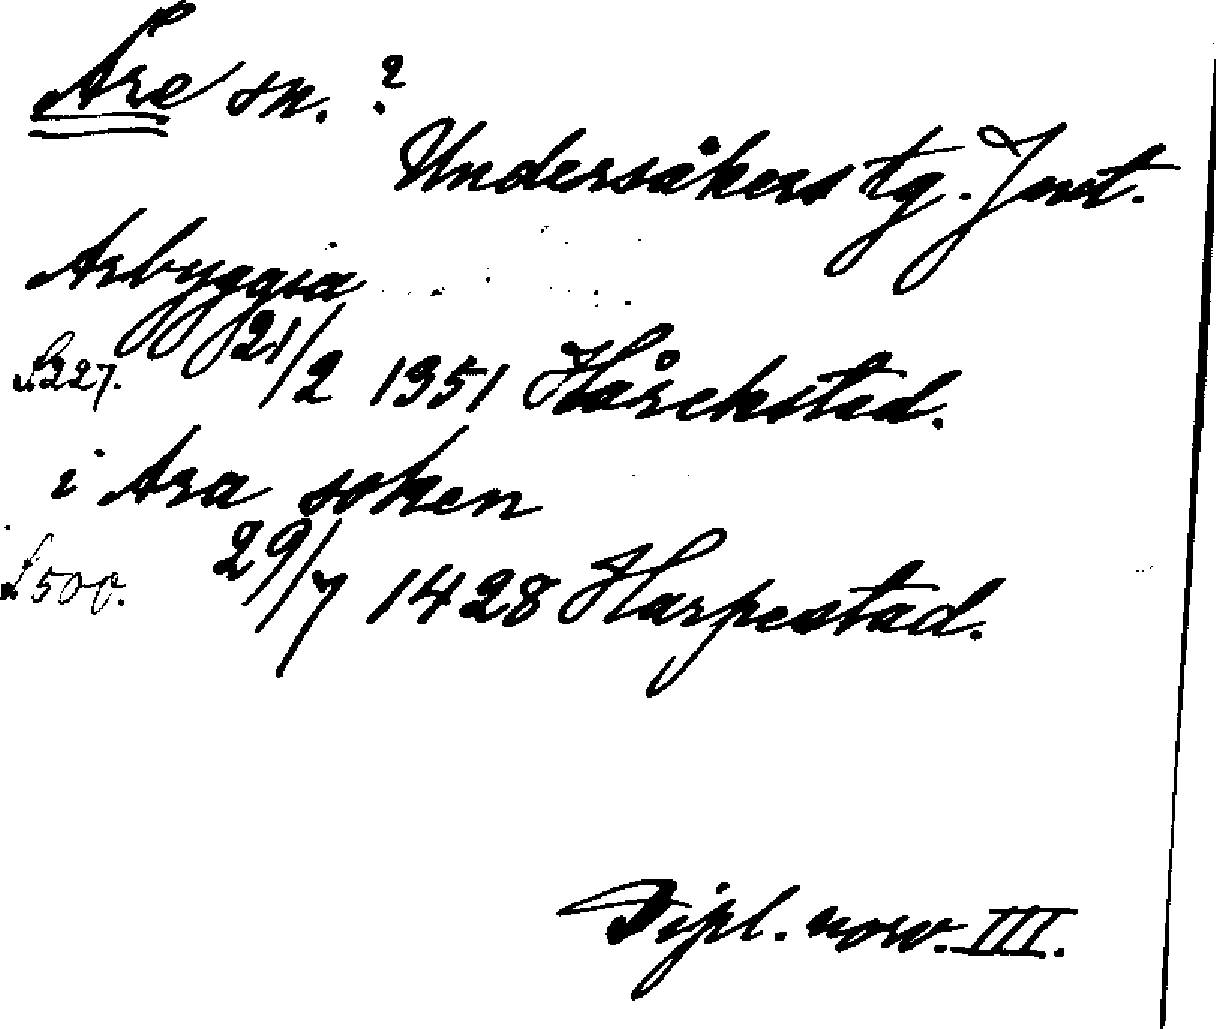 Åre sn. ?
Undersåkers tg. Jmt.
Arbyggia
S. 227. 21/2 1351 Hårekstad.
i Ara soken
S. 500. 29/7 1428 Harpestad.
Dipl. norv. III.